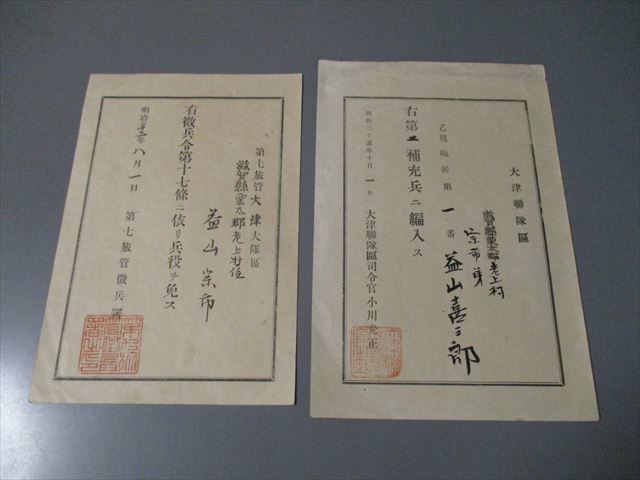 大津聯隊區
滋賀縣栗太郡老上村
宗市弟
乙種抽籤第一番 益山喜三郎
右第二補充兵ニ編入ス
明治三十五年十月一日 大津聯隊區司令官小川光正
第七旅管大津大隊區
滋賀縣栗太郡老上村住
益山宗市
右徴兵令第十七條ニ依リ兵役ヲ免ス
明治廿二年八月一日 第七旅管徴兵署